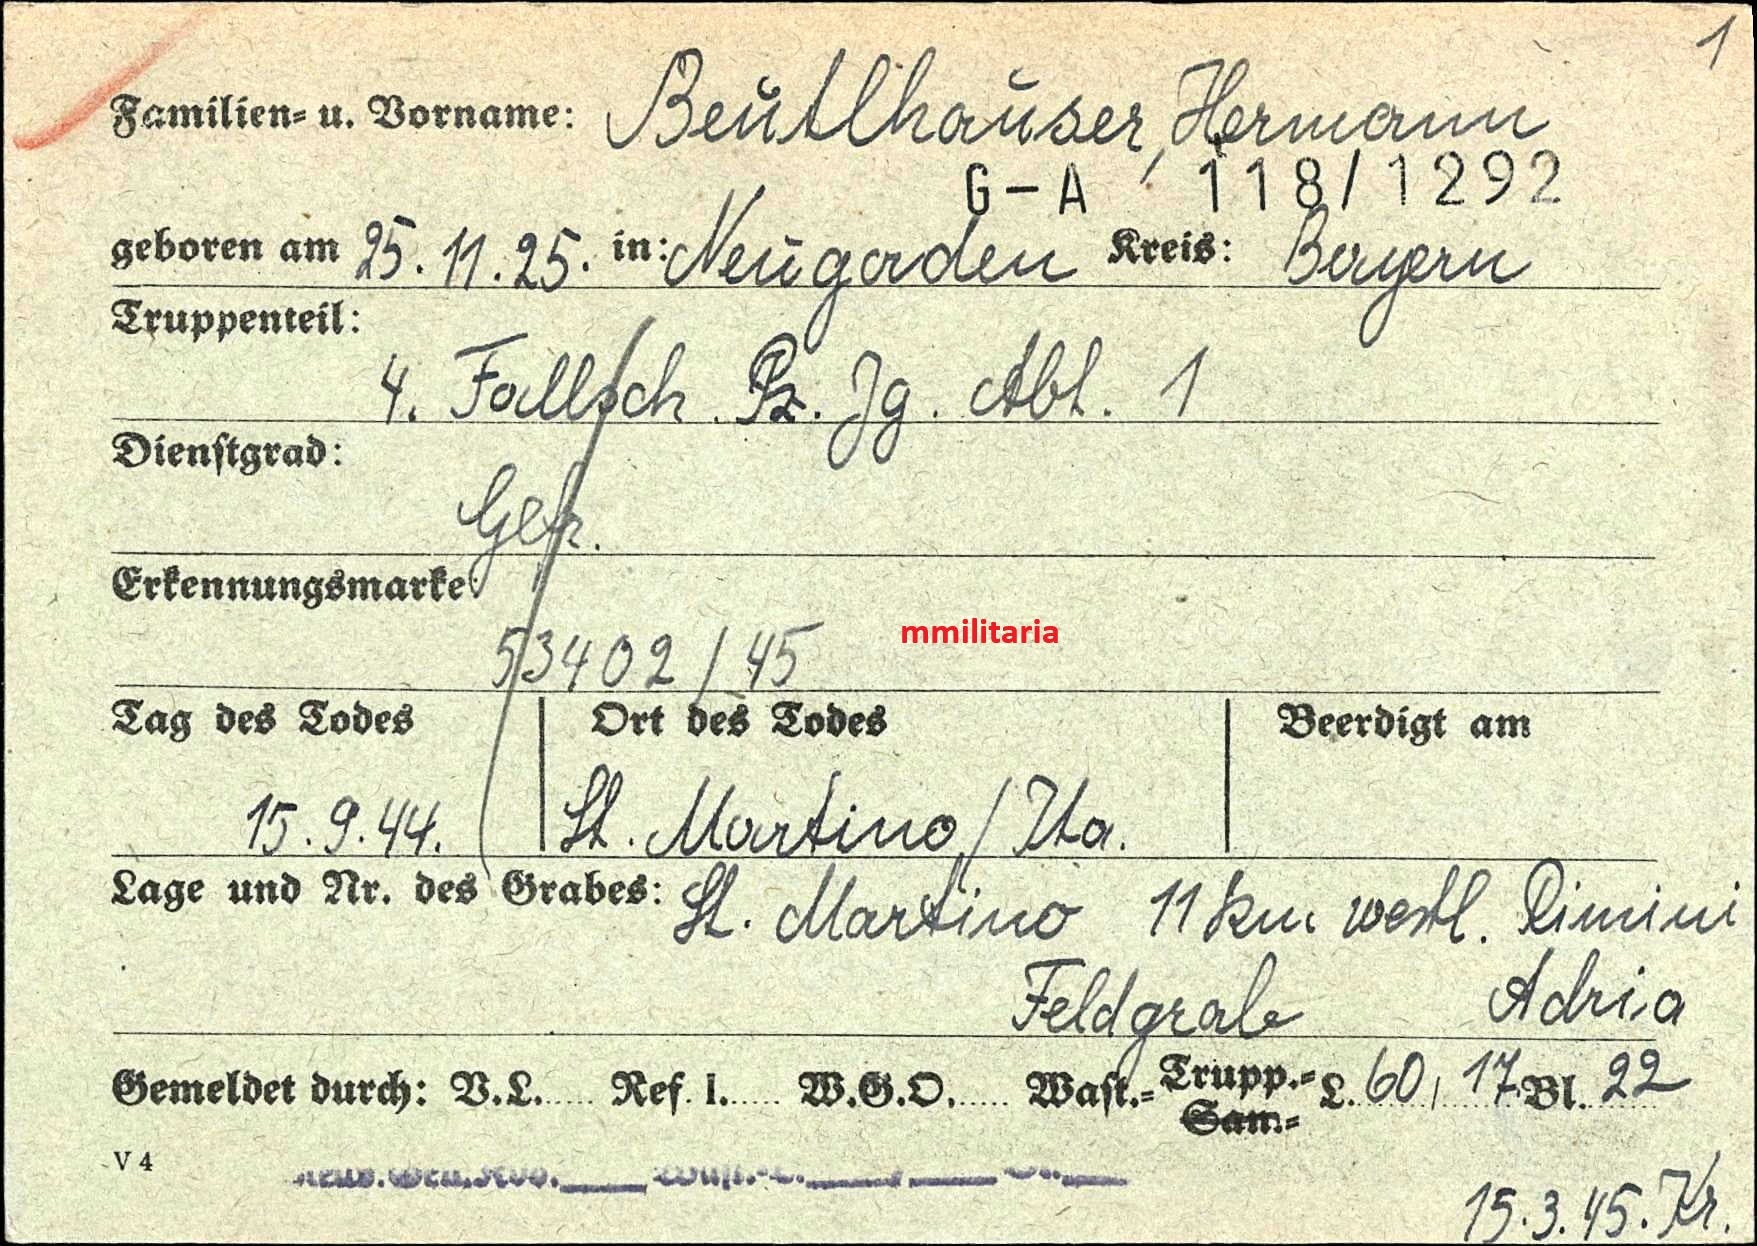 1
Familien- u. Vorname: Beutlhauser, Hermann
G-A 118/1292
geboren am 25.11.25. in: Neugaden Kreis: Bayern
Truppenteil:
4. Fallsch. Pz. Jg. Abt. 1
Dienstgrad:
Gefr.
Erkennungsmarke:
53402/45
mmilitaria
Tag des Todes Ort des Todes Beerdigt am
15.9.44. St. Martino/Ita.
Lage und Nr. des Grabes: St. Martino 11 km westl. Rimini
Feldgrab Adria
Gemeldet durch: V.L. Ref. I. W.G.O. Wast.- Trupp.- L. 60, 17 Bl. 22
San.-
V 4
15.3.45. Kr.